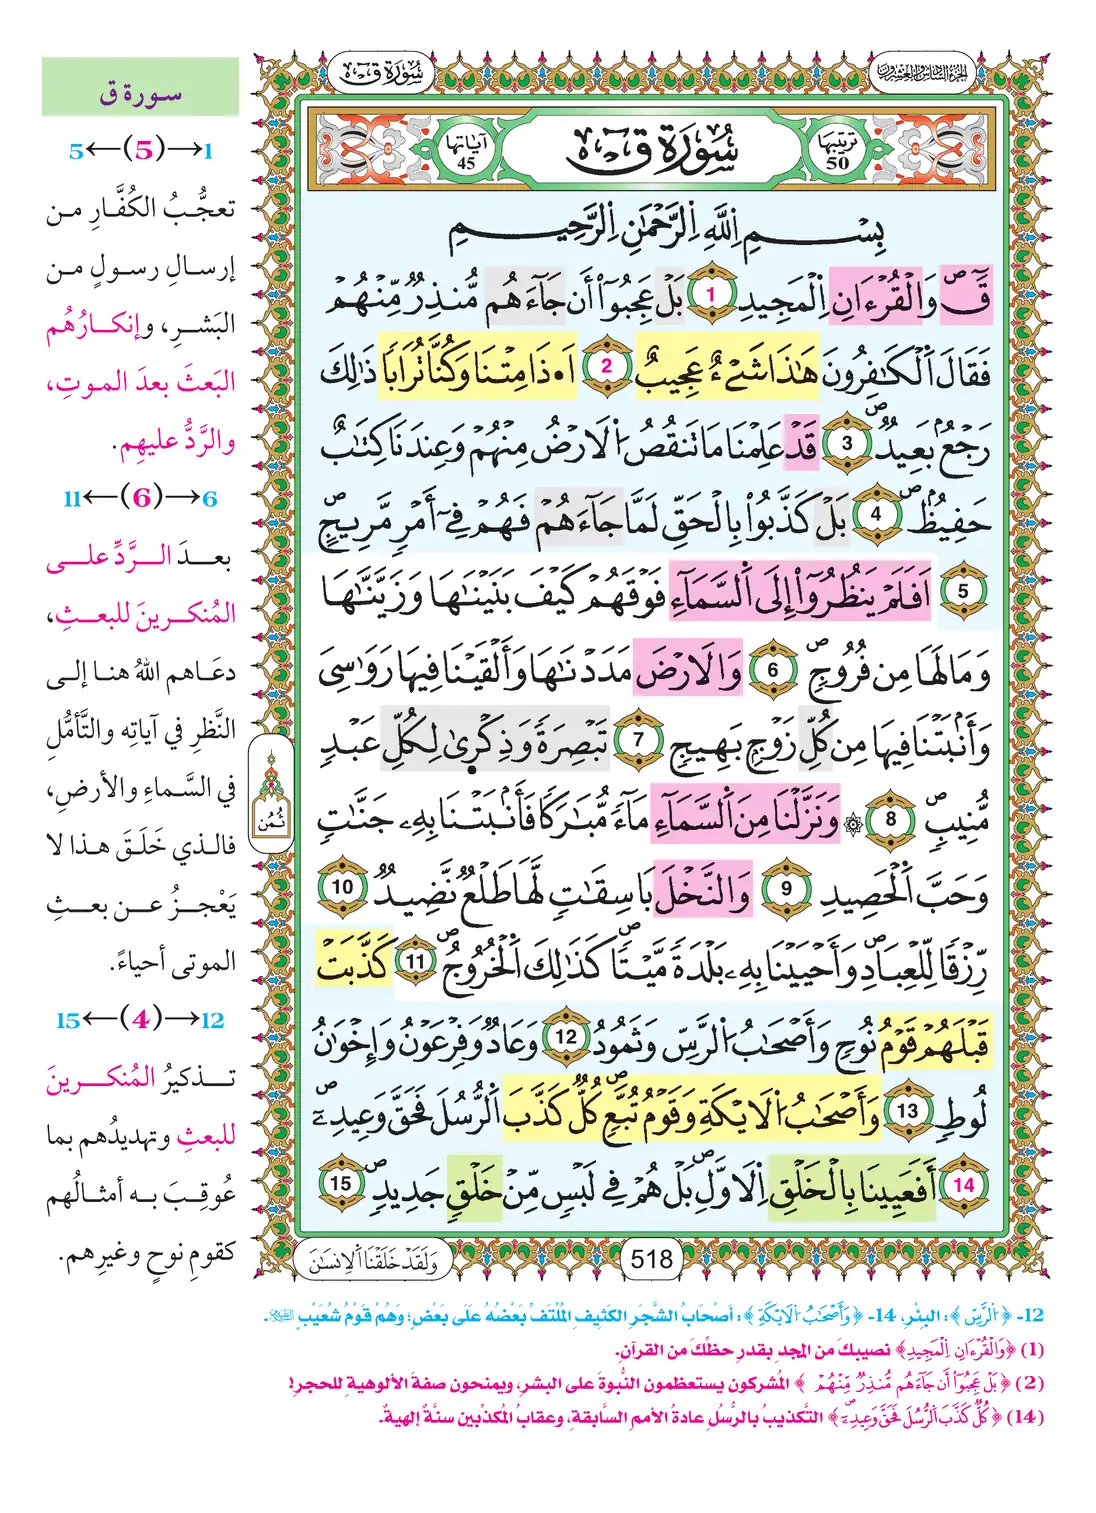 الجزء السادس والعشرون
سُورَةُ قٓ
ترتيبها
50
سُورَةُ قٓ
آياتها
45
بِسْمِ اِللَّهِ اِلرَّحْمَٰنِ اِلرَّحِيمِ
قَٓۖ وَالْقُرْءَانِ اِلْمَجِيدِ 1 بَلْ عَجِبُوٓاْ أَن جَآءَهُم مُّنذِرٌ مِّنْهُمْ
فَقَالَ اَلْكَٰفِرُونَ هَٰذَا شَےْءٌ عَجِيبٌ 2 اَ•ذَا مِتْنَا وَكُنَّا تُرَابًا ذَٰلِكَ
رَجْعُۢ بَعِيدٌۖ 3 قَدْ عَلِمْنَا مَا تَنقُصُ اُلَارْضُ مِنْهُمْ وَعِندَنَا كِتَٰبٌ
حَفِيظٌۢۖ 4 بَلْ كَذَّبُواْ بِالْحَقِّ لَمَّا جَآءَهُمْ فَهُمْ فِےٓ أَمْرٖ مَّرِيجٍۖ
5 اَفَلَمْ يَنظُرُوٓاْ إِلَى اَلسَّمَآءِ فَوْقَهُمْ كَيْفَ بَنَيْنَٰهَا وَزَيَّنَّٰهَا
وَمَا لَهَا مِن فُرُوجٖۖ 6 وَالَارْضَ مَدَدْنَٰهَا وَأَلْقَيْنَا فِيهَا رَوَٰسِىَ
وَأَنۢبَتْنَا فِيهَا مِن كُلِّ زَوْجِۢ بَهِيجٖ 7 تَبْصِرَةٗ وَذِكْر۪يٰ لِكُلِّ عَبْدٖ
مُّنِيبٖۖ 8 ۞ وَنَزَّلْنَا مِنَ اَلسَّمَآءِ مَآءٗ مُّبَٰرَكاٗ فَأَنۢبَتْنَا بِهِۦ جَنَّٰتٖ
وَحَبَّ اَلْحَصِيدِ 9 وَالنَّخْلَ بَاسِقَٰتٖ لَّهَا طَلْعٌ نَّضِيدٌ 10
رِّزْقاٗ لِّلْعِبَادِۖ وَأَحْيَيْنَا بِهِۦ بَلْدَةٗ مَّيْتاٗۖ كَذَٰلِكَ اَلْخُرُوجُۖ 11 كَذَّبَتْ
قَبْلَهُمْ قَوْمُ نُوحٖ وَأَصْحَٰبُ اُلرَّسِّ وَثَمُودُ 12 وَعَادٌ وَفِرْعَوْنُ وَإِخْوَٰنُ
لُوطٖ 13 وَأَصْحَٰبُ اُلَايْكَةِ وَقَوْمُ تُبَّعٖۖ كُلٌّ كَذَّبَ اَلرُّسُلَ فَحَقَّ وَعِيدِۦۖ
14 أَفَعَيِينَا بِالْخَلْقِ اِلَاوَّلِۖ بَلْ هُمْ فِے لَبْسٖ مِّنْ خَلْقٖ جَدِيدٖۖ 15
ثُمُن
وَلَقَدْ خَلَقْنَا اَلِانسَٰنَ
518
سورة ق
1→(5)←5
تعجُّبُ الكُفَّارِ من
إرسالِ رسولٍ من
البَشرِ، وإنكارُهُم
البَعثَ بعدَ الموتِ،
والرَّدُّ عليهِم.
6→(6)←11
بعدَ الرَّدِّ على
المُنكرينَ للبعثِ،
دعَاهم اللهُ هنا إلى
النَّظرِ في آياتِه والتَّأمُّلِ
في السَّماءِ والأرضِ،
فالذي خَلَقَ هذا لا
يَعْجزُ عن بعثِ
الموتى أحياءً.
12→(4)←15
تذكيرُ المُنكرينَ
للبعثِ وتهديدُهم بما
عُوقِبَ به أمثالُهم
كقومِ نوحٍ وغيرِهم.
12- ﴿اُلرَّسِّ﴾: البِئْرِ، 14- ﴿وَأَصْحَٰبُ اُلَايْكَةِ﴾: أصْحَابُ الشَّجَرِ الكَثِيفِ المُلْتَفِّ بَعْضُهُ عَلَى بَعْضٍ؛ وَهُمْ قَوْمُ شُعَيْبٍ عليه السلام.
(1) ﴿وَالْقُرْءَانِ اِلْمَجِيدِ﴾ نصيبكَ من المجدِ بقدرِ حظِّكَ من القرآنِ.
(2) ﴿بَلْ عَجِبُوٓاْ أَن جَآءَهُم مُّنذِرٌ مِّنْهُمْ﴾ المُشركون يستعظمون النُّبوةَ على البشرِ، ويمنحون صفةَ الألوهيةِ للحجرِ!
(14) ﴿كُلٌّ كَذَّبَ اَلرُّسُلَ فَحَقَّ وَعِيدِۦۖ﴾ التَّكذيبُ بالرُّسلِ عادةُ الأممِ السَّابقةِ، وعقابُ المُكذِّبين سنَّةٌ إلهيةٌ.